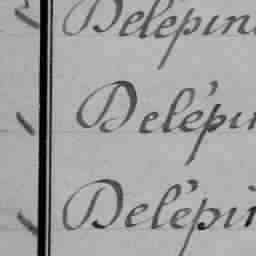 Delépin
Delépin
Delépin